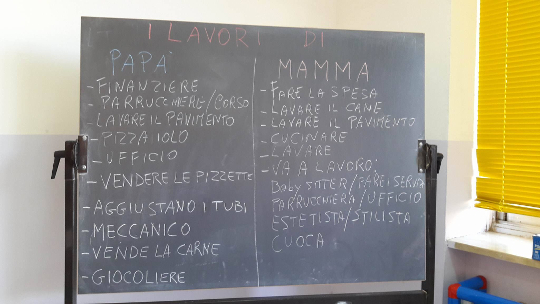 I LAVORI DI
PAPA'
- FINANZIERE
- PARRUCCHIERE/CORSO
- LAVARE IL PAVIMENTO
- PIZZAIOLO
- UFFICIO
- VENDERE LE PIZZETTE
- AGGIUSTANO I TUBI
- MECCANICO
- VENDE LA CARNE
- GIOCOLIERE
MAMMA
- FARE LA SPESA
- LAVARE IL CANE
- LAVARE IL PAVIMENTO
- CUCINARE
- LAVARE
- VA A LAVORO:
BABY SITER/
PARRUCCHIERA/UFFICIO
ESTETISTA/STILISTA
CUOCA